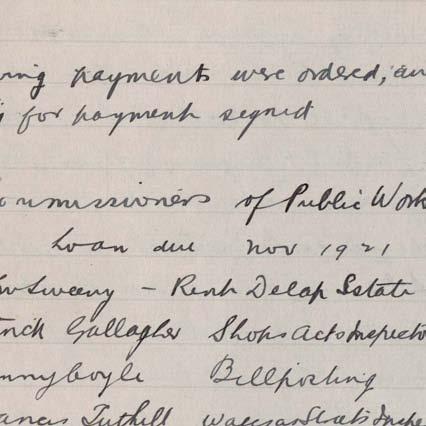 ing payments were ordered, an
for payment signed
ommissioners of Public Work
Loan due Nov 1921
Sweeny - Rent Delap Estate
rick Gallagher Shops Acts Inspecto
nnyboyle Billposting
ancis Tuthill